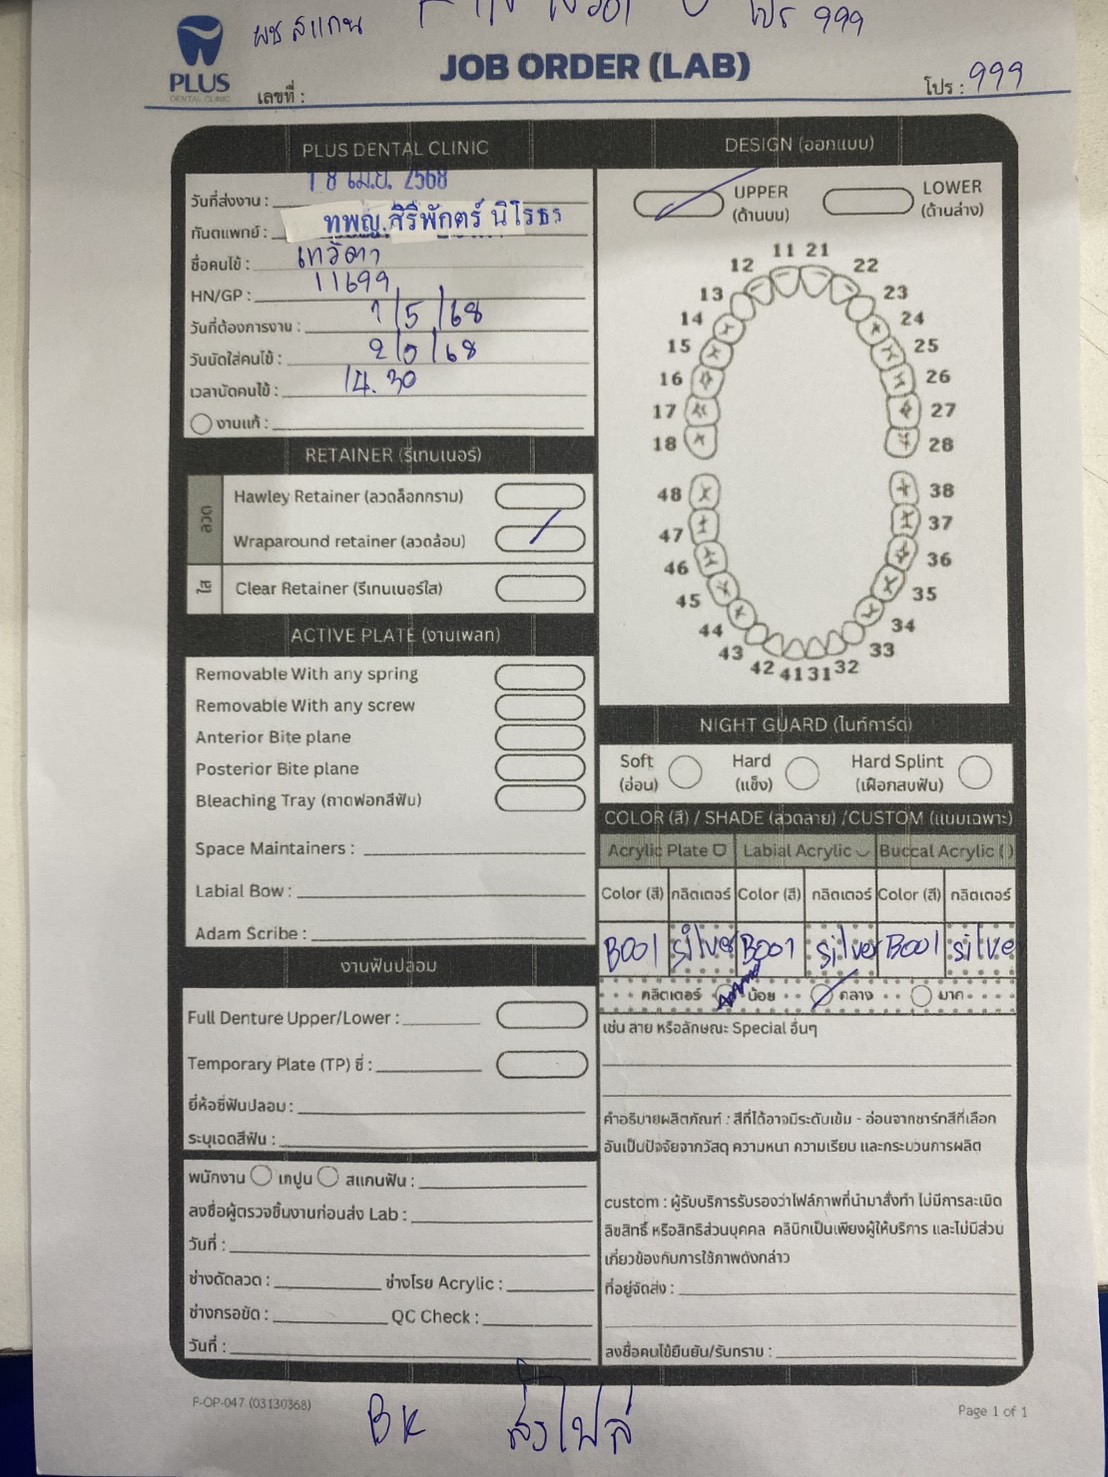 ผช สแกน โปร 999
PLUS
DENTAL CLINIC
JOB ORDER (LAB)
เลขที่ :
โปร : 999
PLUS DENTAL CLINIC
วันที่ส่งงาน : 18 เม.ย. 2568
ทันตแพทย์ : ทพญ.สิรีพักตร์ นิโรธร
ชื่อคนไข้ : เทวิตา
HN/GP : 11699
วันที่ต้องการงาน : 1/5/68
วันนัดใส่คนไข้ : 2/5/68
เวลานัดคนไข้ : 14.30
งานแก้ :
RETAINER (รีเทนเนอร์)
ลวด
Hawley Retainer (ลวดล็อกกราม)
Wraparound retainer (ลวดล้อม)
ใส
Clear Retainer (รีเทนเนอร์ใส)
ACTIVE PLATE (งานเพลท)
Removable With any spring
Removable With any screw
Anterior Bite plane
Posterior Bite plane
Bleaching Tray (ถาดฟอกสีฟัน)
Space Maintainers :
Labial Bow :
Adam Scribe :
งานฟันปลอม
Full Denture Upper/Lower :
Temporary Plate (TP) ซี่ :
ยี่ห้อซี่ฟันปลอม :
ระบุเฉดสีฟัน :
พนักงาน เทปูน สแกนฟัน :
ลงชื่อผู้ตรวจชิ้นงานก่อนส่ง Lab :
วันที่ :
ช่างดัดลวด : ช่างโรย Acrylic :
ช่างกรอขัด : QC Check :
วันที่ :
DESIGN (ออกแบบ)
UPPER
(ด้านบน)
LOWER
(ด้านล่าง)
11 21
12 22
13 23
14 24
15 25
16 26
17 27
18 28
48 38
47 37
46 36
45 35
44 34
43 33
42 41 31 32
NIGHT GUARD (ไนท์การ์ด)
Soft
(อ่อน)
Hard
(แข็ง)
Hard Splint
(เฝือกสบฟัน)
COLOR (สี) / SHADE (ลวดลาย) /CUSTOM (แบบเฉพาะ)
Acrylic Plate Labial Acrylic Buccal Acrylic ( )
Color (สี) กลิตเตอร์ Color (สี) กลิตเตอร์ Color (สี) กลิตเตอร์
B001 silver B001 silver B001 silve
กลิตเตอร์ น้อย กลาง มาก
เช่น ลาย หรือลักษณะ Special อื่นๆ
คำอธิบายผลิตภัณฑ์ : สีที่ได้อาจมีระดับเข้ม - อ่อนจากชาร์ทสีที่เลือก
อันเป็นปัจจัยจากวัสดุ ความหนา ความเรียบ และกระบวนการผลิต
custom : ผู้รับบริการรับรองว่าไฟล์ภาพที่นำมาสั่งทำ ไม่มีการละเมิด
ลิขสิทธิ์ หรือสิทธิส่วนบุคคล คลินิกเป็นเพียงผู้ให้บริการ และไม่มีส่วน
เกี่ยวข้องกับการใช้ภาพดังกล่าว
ที่อยู่จัดส่ง :
ลงชื่อคนไข้ยืนยัน/รับทราบ :
F-OP-047 (03130368)
Page 1 of 1
BK ส่งไฟล์